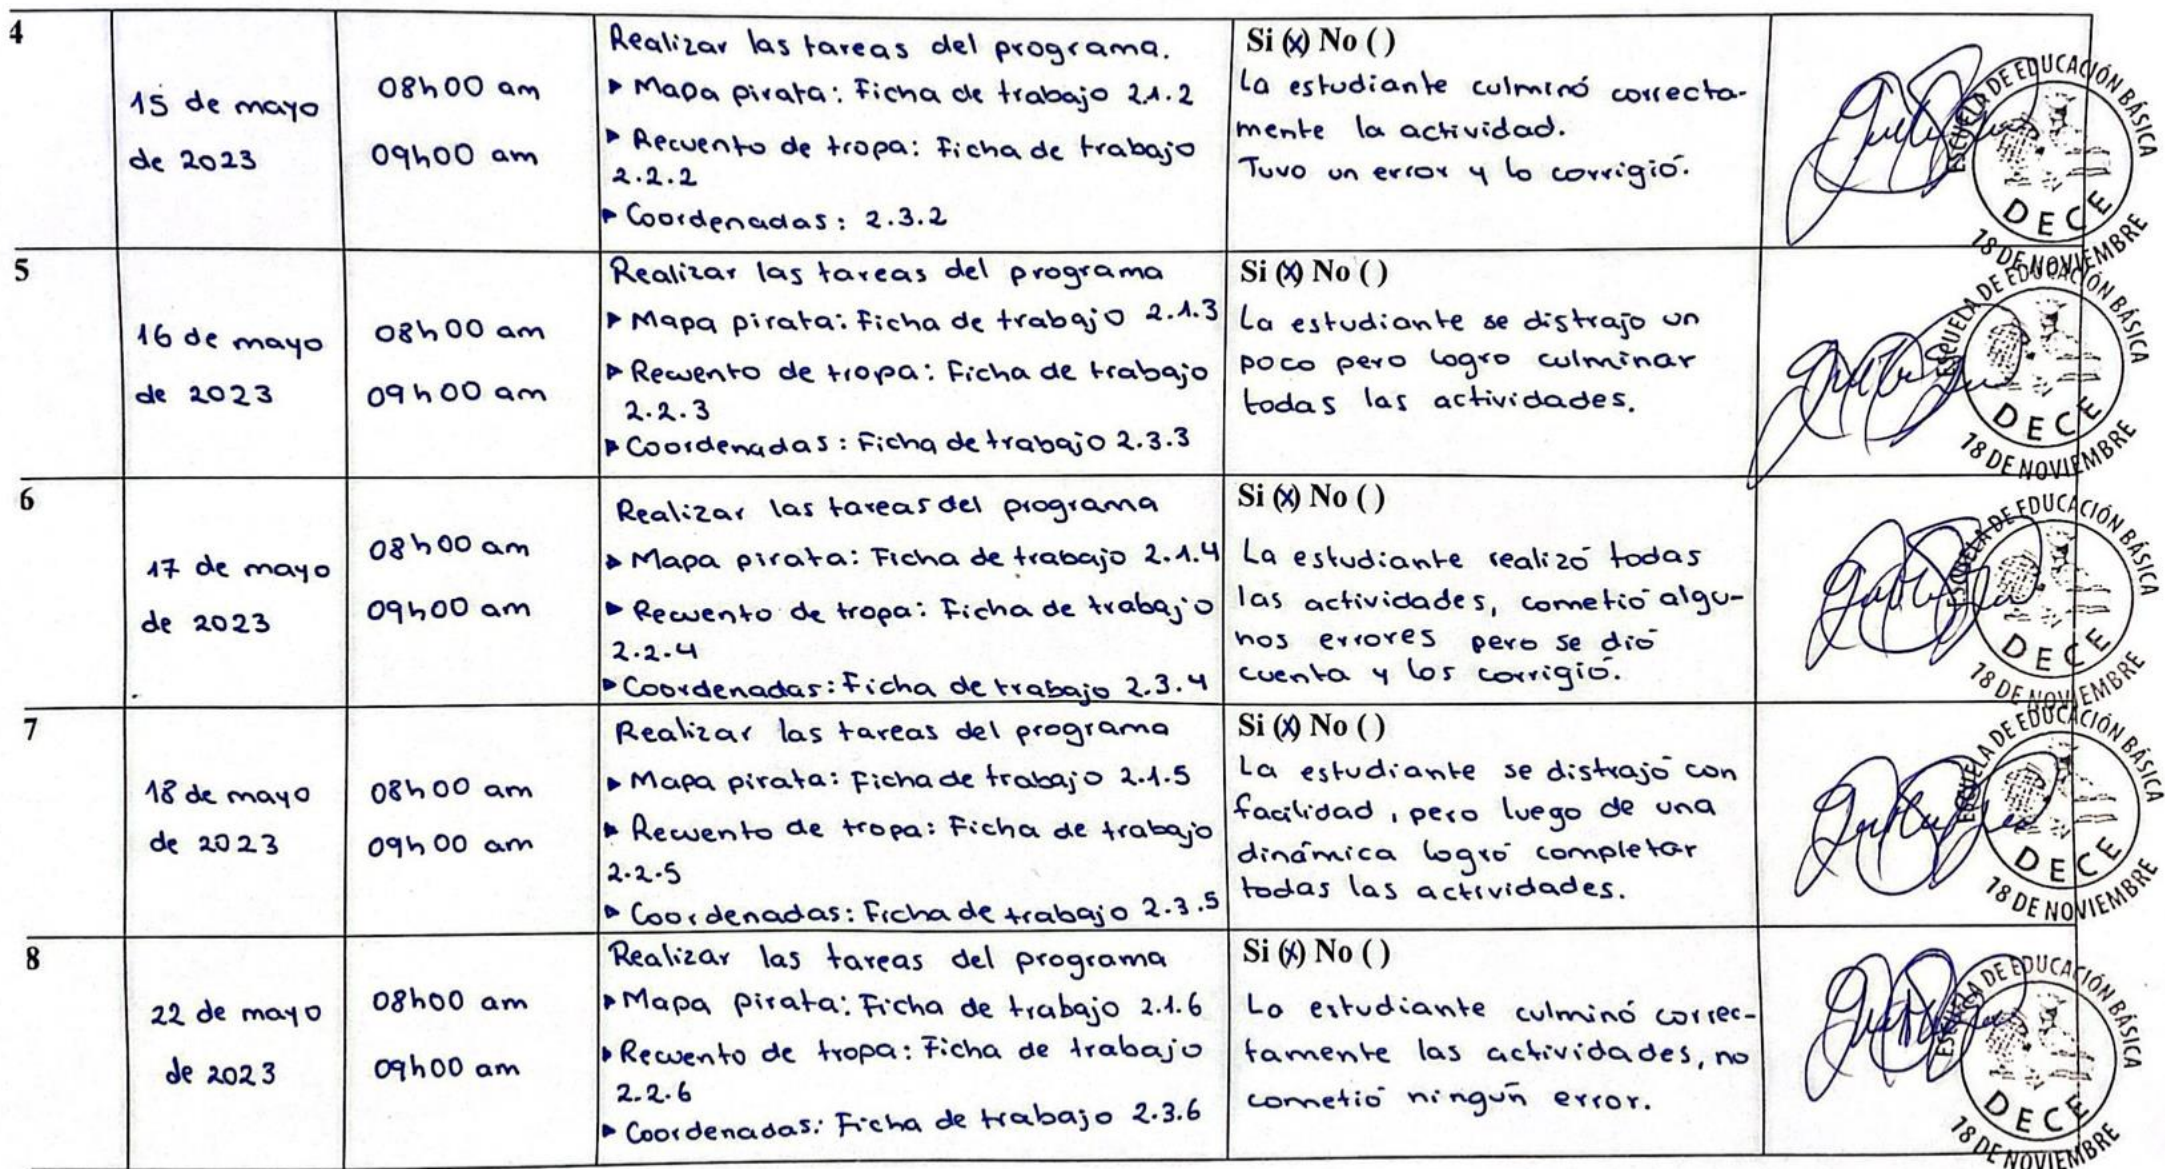 4
15 de mayo
de 2023
08h00 am
09h00 am
Realizar las tareas del programa.
▸ Mapa pirata: Ficha de trabajo 2.1.2
▸ Recuento de tropa: Ficha de trabajo
2.2.2
▸ Coordenadas: 2.3.2
Si (x) No ( )
La estudiante culminó correcta-
mente la actividad.
Tuvo un error y lo corrigió.
ESCUELA DE EDUCACIÓN BÁSICA
DECE
18 DE NOVIEMBRE
5
16 de mayo
de 2023
08h00 am
09h00 am
Realizar las tareas del programa
▸ Mapa pirata: Ficha de trabajo 2.1.3
▸ Recuento de tropa: Ficha de trabajo
2.2.3
▸ Coordenadas: Ficha de trabajo 2.3.3
Si (x) No ( )
La estudiante se distrajo un
poco pero logro culminar
todas las actividades.
ESCUELA DE EDUCACIÓN BÁSICA
DECE
18 DE NOVIEMBRE
6
17 de mayo
de 2023
08h00 am
09h00 am
Realizar las tareas del programa
▸ Mapa pirata: Ficha de trabajo 2.1.4
▸ Recuento de tropa: Ficha de trabajo
2.2.4
▸ Coordenadas: Ficha de trabajo 2.3.4
Si (x) No ( )
La estudiante realizó todas
las actividades, cometió algu-
nos errores pero se dió
cuenta y los corrigió.
ESCUELA DE EDUCACIÓN BÁSICA
DECE
18 DE NOVIEMBRE
7
18 de mayo
de 2023
08h00 am
09h00 am
Realizar las tareas del programa
▸ Mapa pirata: Ficha de trabajo 2.1.5
▸ Recuento de tropa: Ficha de trabajo
2.2.5
▸ Coordenadas: Ficha de trabajo 2.3.5
Si (x) No ( )
La estudiante se distrajó con
facilidad, pero luego de una
dinámica logró completar
todas las actividades.
ESCUELA DE EDUCACIÓN BÁSICA
DECE
18 DE NOVIEMBRE
8
22 de mayo
de 2023
08h00 am
09h00 am
Realizar las tareas del programa
▸ Mapa pirata: Ficha de trabajo 2.1.6
▸ Recuento de tropa: Ficha de trabajo
2.2.6
▸ Coordenadas: Ficha de trabajo 2.3.6
Si (x) No ( )
La estudiante culminó correc-
tamente las actividades, no
cometió ningún error.
ESCUELA DE EDUCACIÓN BÁSICA
DECE
18 DE NOVIEMBRE